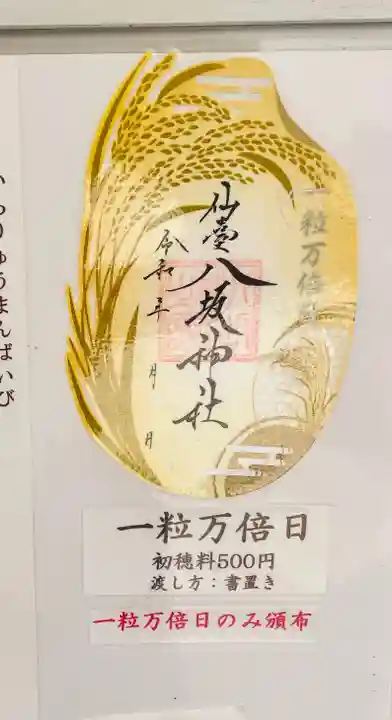 いちりゅうまんばいび
一粒万倍日
仙臺八坂神社
令和 年 月 日
一粒万倍日
初穂料500円
渡し方：書置き
一粒万倍日のみ頒布